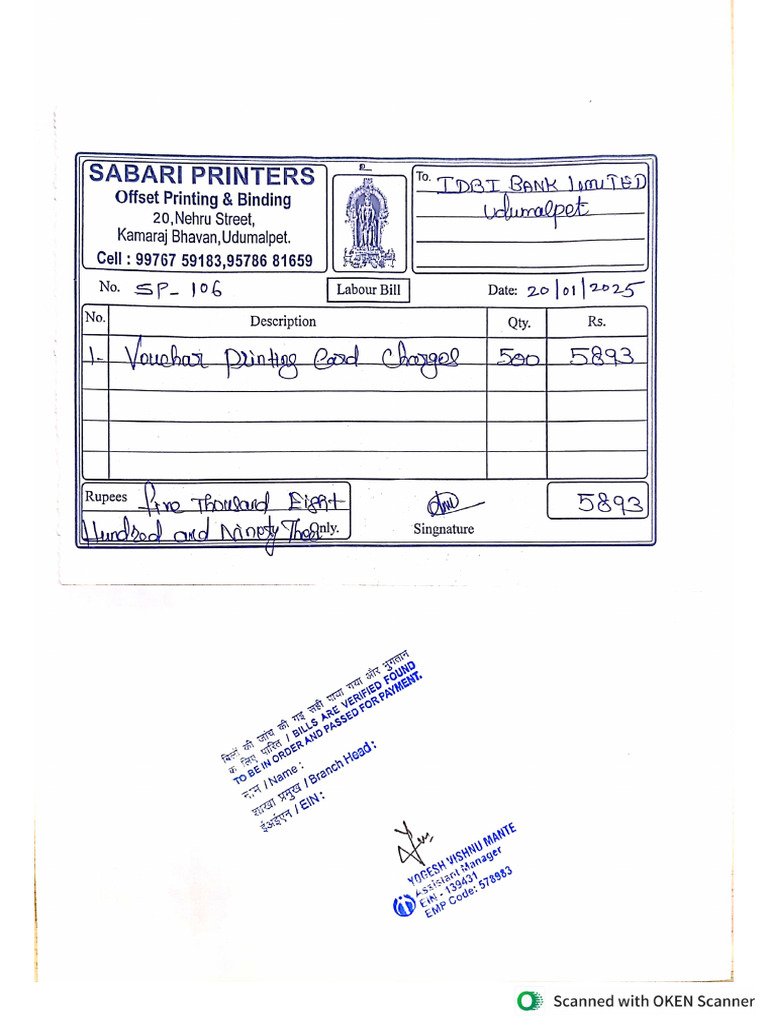 SABARI PRINTERS
Offset Printing & Binding
20,Nehru Street,
Kamaraj Bhavan,Udumalpet.
Cell : 99767 59183,95786 81659
உ
To. IDBI BANK LIMITED
Udumalpet
No. SP- 106
Labour Bill
Date: 20/01/2025
No. Description Qty. Rs.
1- Vouchar Printing Card Charges 500 5893
Rupees Five Thousand Eight
Hundred and Ninety Three Only.
Singnature
5893
बिलों की जांच की गइ सही पाया गया और भुगतान
के लिए पारित / BILLS ARE VERIFIED FOUND
TO BE IN ORDER AND PASSED FOR PAYMENT.
न.न / Name :
शाखा प्रमुख / Branch Head :
ईआईएन / EIN :
YOGESH VISHNU MANTE
Assistant Manager
EIN - 139431
EMP Code: 578983
Scanned with OKEN Scanner